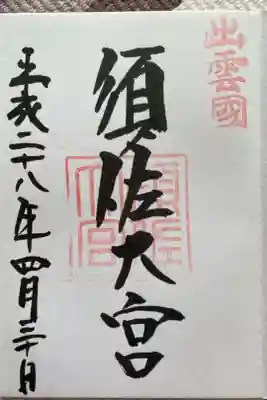 出雲國
須佐大宮
平成二十八年四月三十日